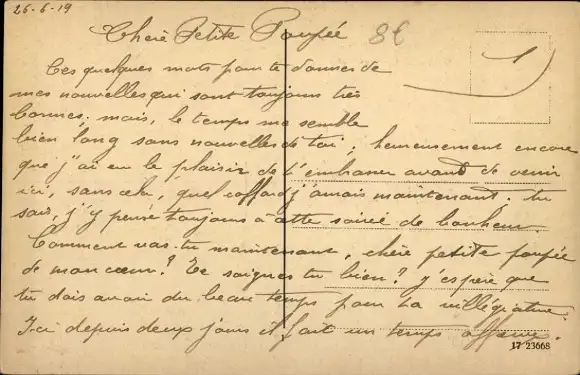 26-6-19
Chère Petite Poupée
8€
Ces quelques mots pour te donner de
mes nouvelles qui sont toujours très
bonnes; mais, le temps me semble
bien long sans nouvelles de toi; heureusement encore
que j'ai eu le plaisir de t'embrasser avant de venir
ici, sans cela, quel caffard j'aurais maintenant. tu
sais, j'y pense toujours à cette soirée de bonheur.
Comment vas-tu maintenant, chère petite poupée
de mon cœur? Te soignes tu bien? j'espère que
tu dois avoir du beau temps pour ta villégiature.
Ici depuis deux jours il fait un temps affreux.
17 23668